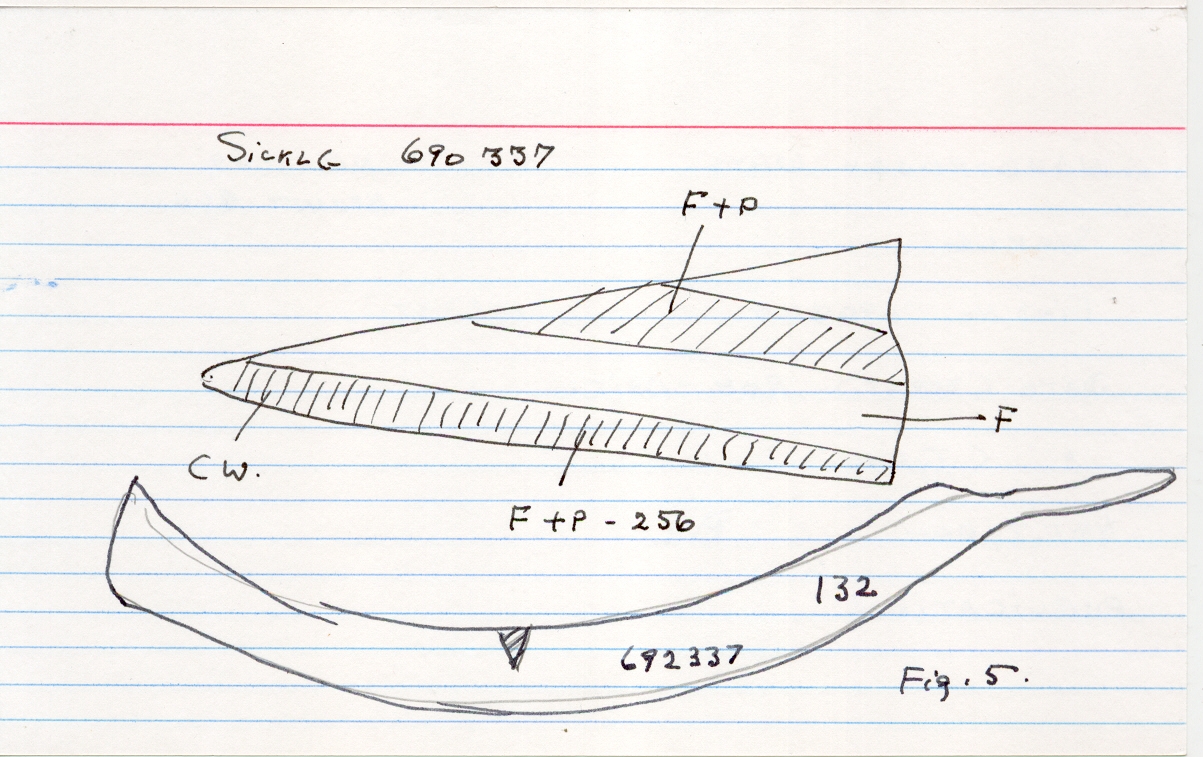 SICKLE 690 337
F + P
F
C W.
F + P - 256
132
692337
Fig. 5.